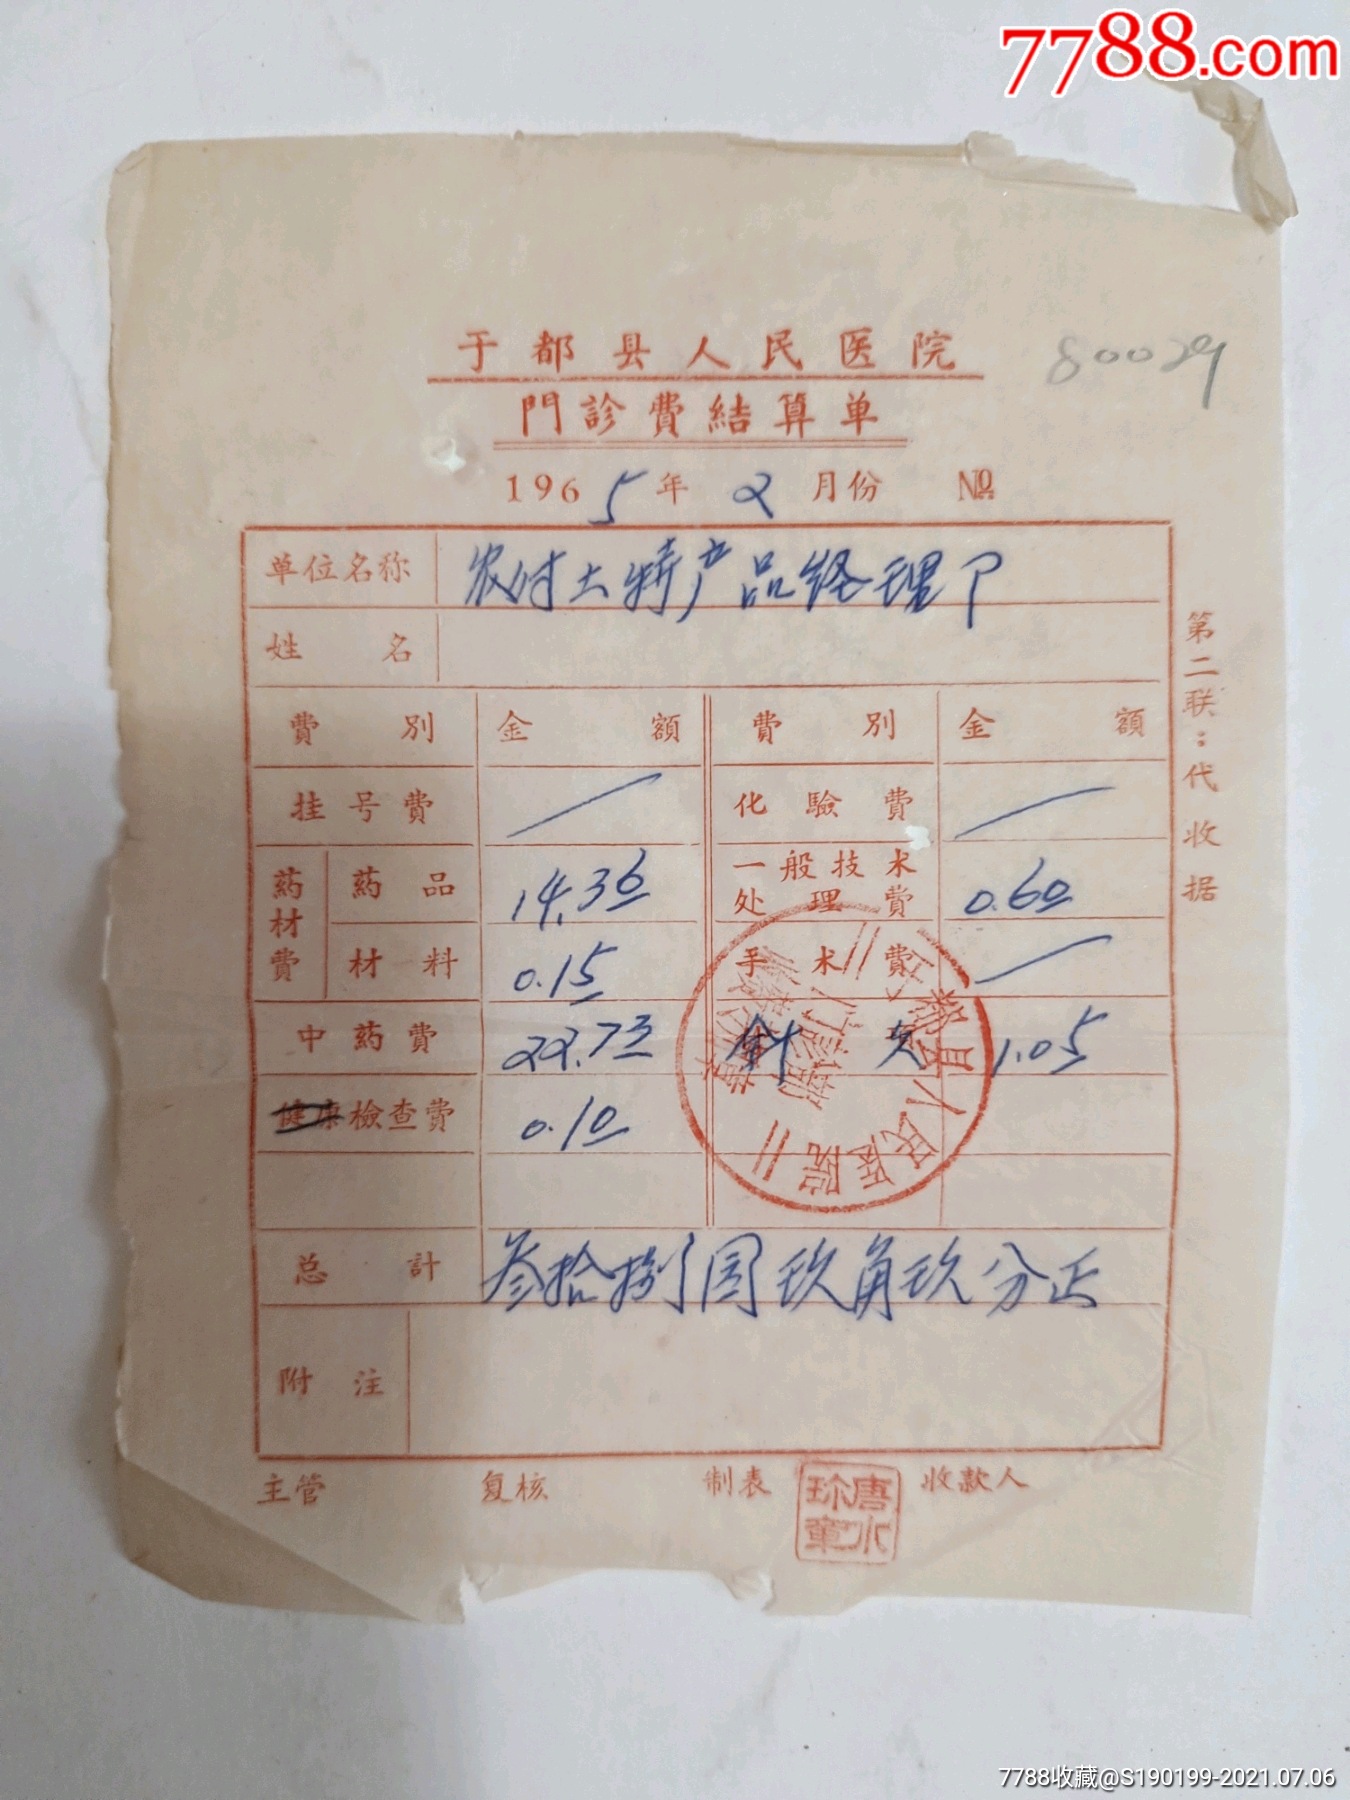 7788.com
于都县人民医院
80029
門診費結算单
1965年2月份 №
单位名称 农村土特产品经理卩
姓名
費別 金額 費別 金額
挂号費 化驗費
药材費 药品 14.36 一般技术处理費 0.60
材料 0.15 手术費
中药費 22.73 針欠 1.05
健康檢查費 0.10
总計 叁拾捌圆玖角玖分正
附注
第二联：代收据
于都县人民医院
门诊部
主管 复核 制表 唐水珍章 收款人
7788收藏@S190199-2021.07.06